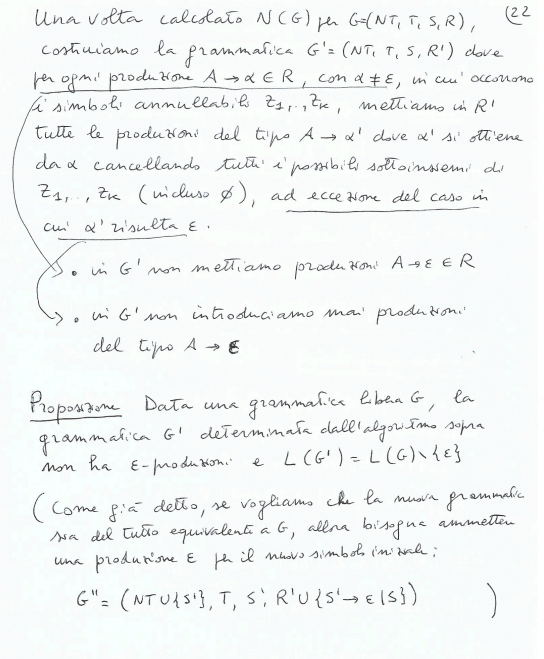 (22
Una volta calcolato N(G) per G=(NT, T, S, R),
costruiamo la grammatica G'= (NT, T, S, R') dove
per ogni produzione A → α ∈ R, con α ≠ ε, in cui occorrono
i simboli annullabili Z1,.., Zk, mettiamo in R'
tutte le produzioni del tipo A → α' dove α' si ottiene
da α cancellando tutti i possibili sottoinsiemi di
Z1,.., Zk (incluso ∅), ad eccezione del caso in
cui α' risulta ε.
• in G' non mettiamo produzioni A → ε ∈ R
• in G' non introduciamo mai produzioni
del tipo A → ε
Proposizione Data una grammatica libera G, la
grammatica G' determinata dall'algoritmo sopra
non ha ε-produzioni e L(G') = L(G)\{ε}
(Come già detto, se vogliamo che la nuova grammatic
sia del tutto equivalente a G, allora bisogna ammetter
una produzione ε per il nuovo simbolo iniziale:
G" = (NT∪{S'}, T, S', R'∪{S'→ ε|S}) )